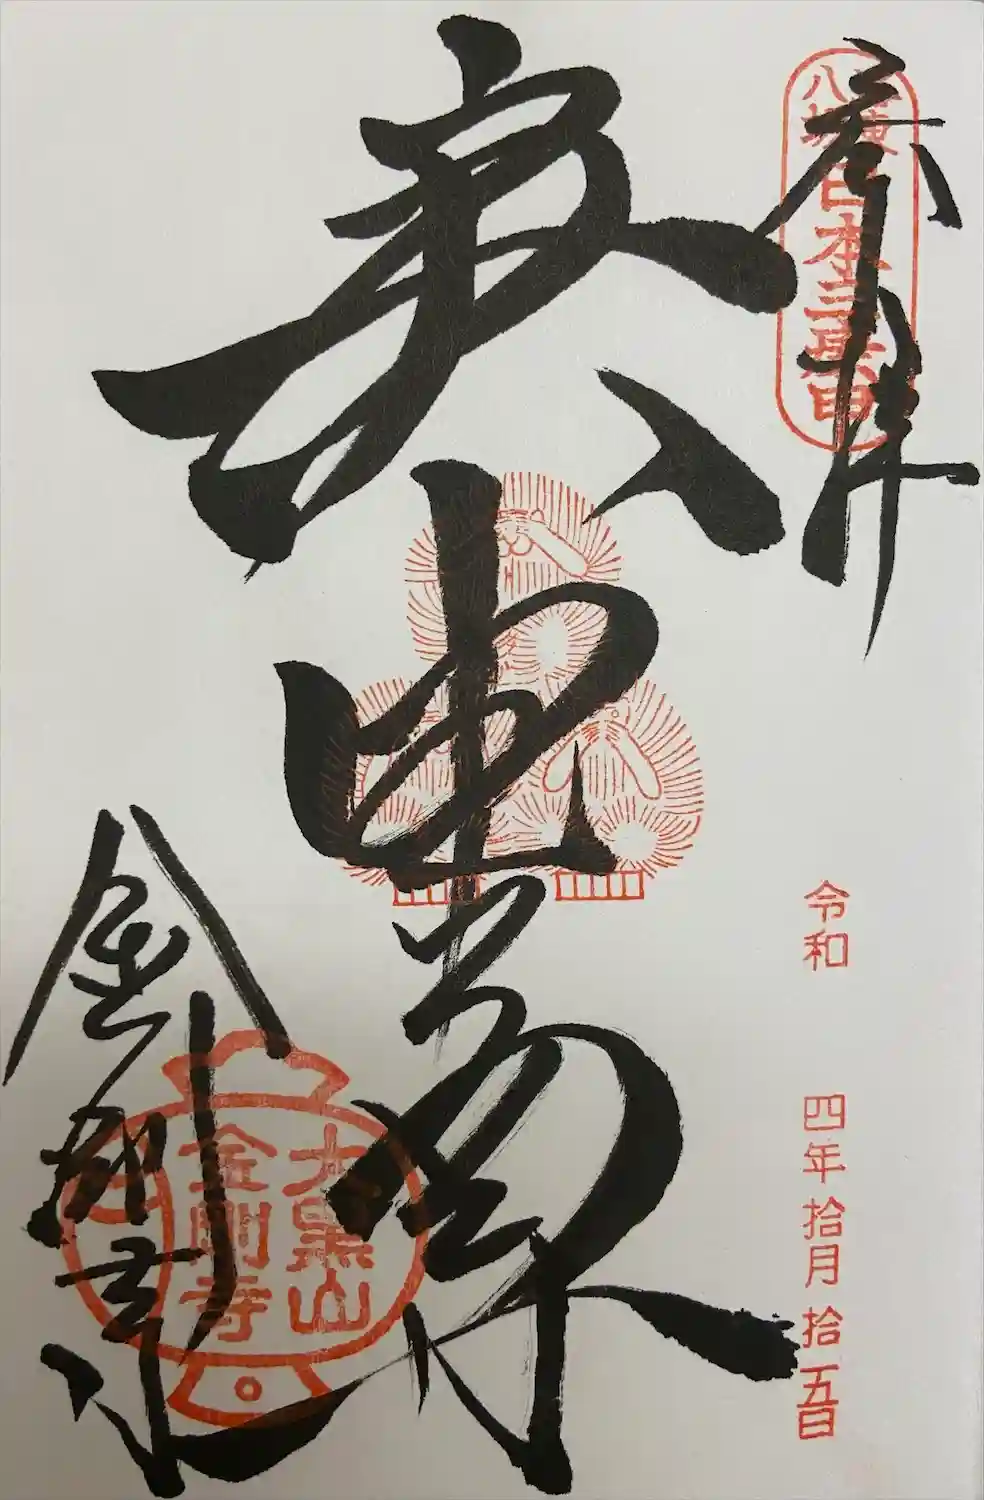 奉拝
八坂
日本三庚申
令和四年拾月拾五日
庚申
金剛寺
大黒山
金剛寺